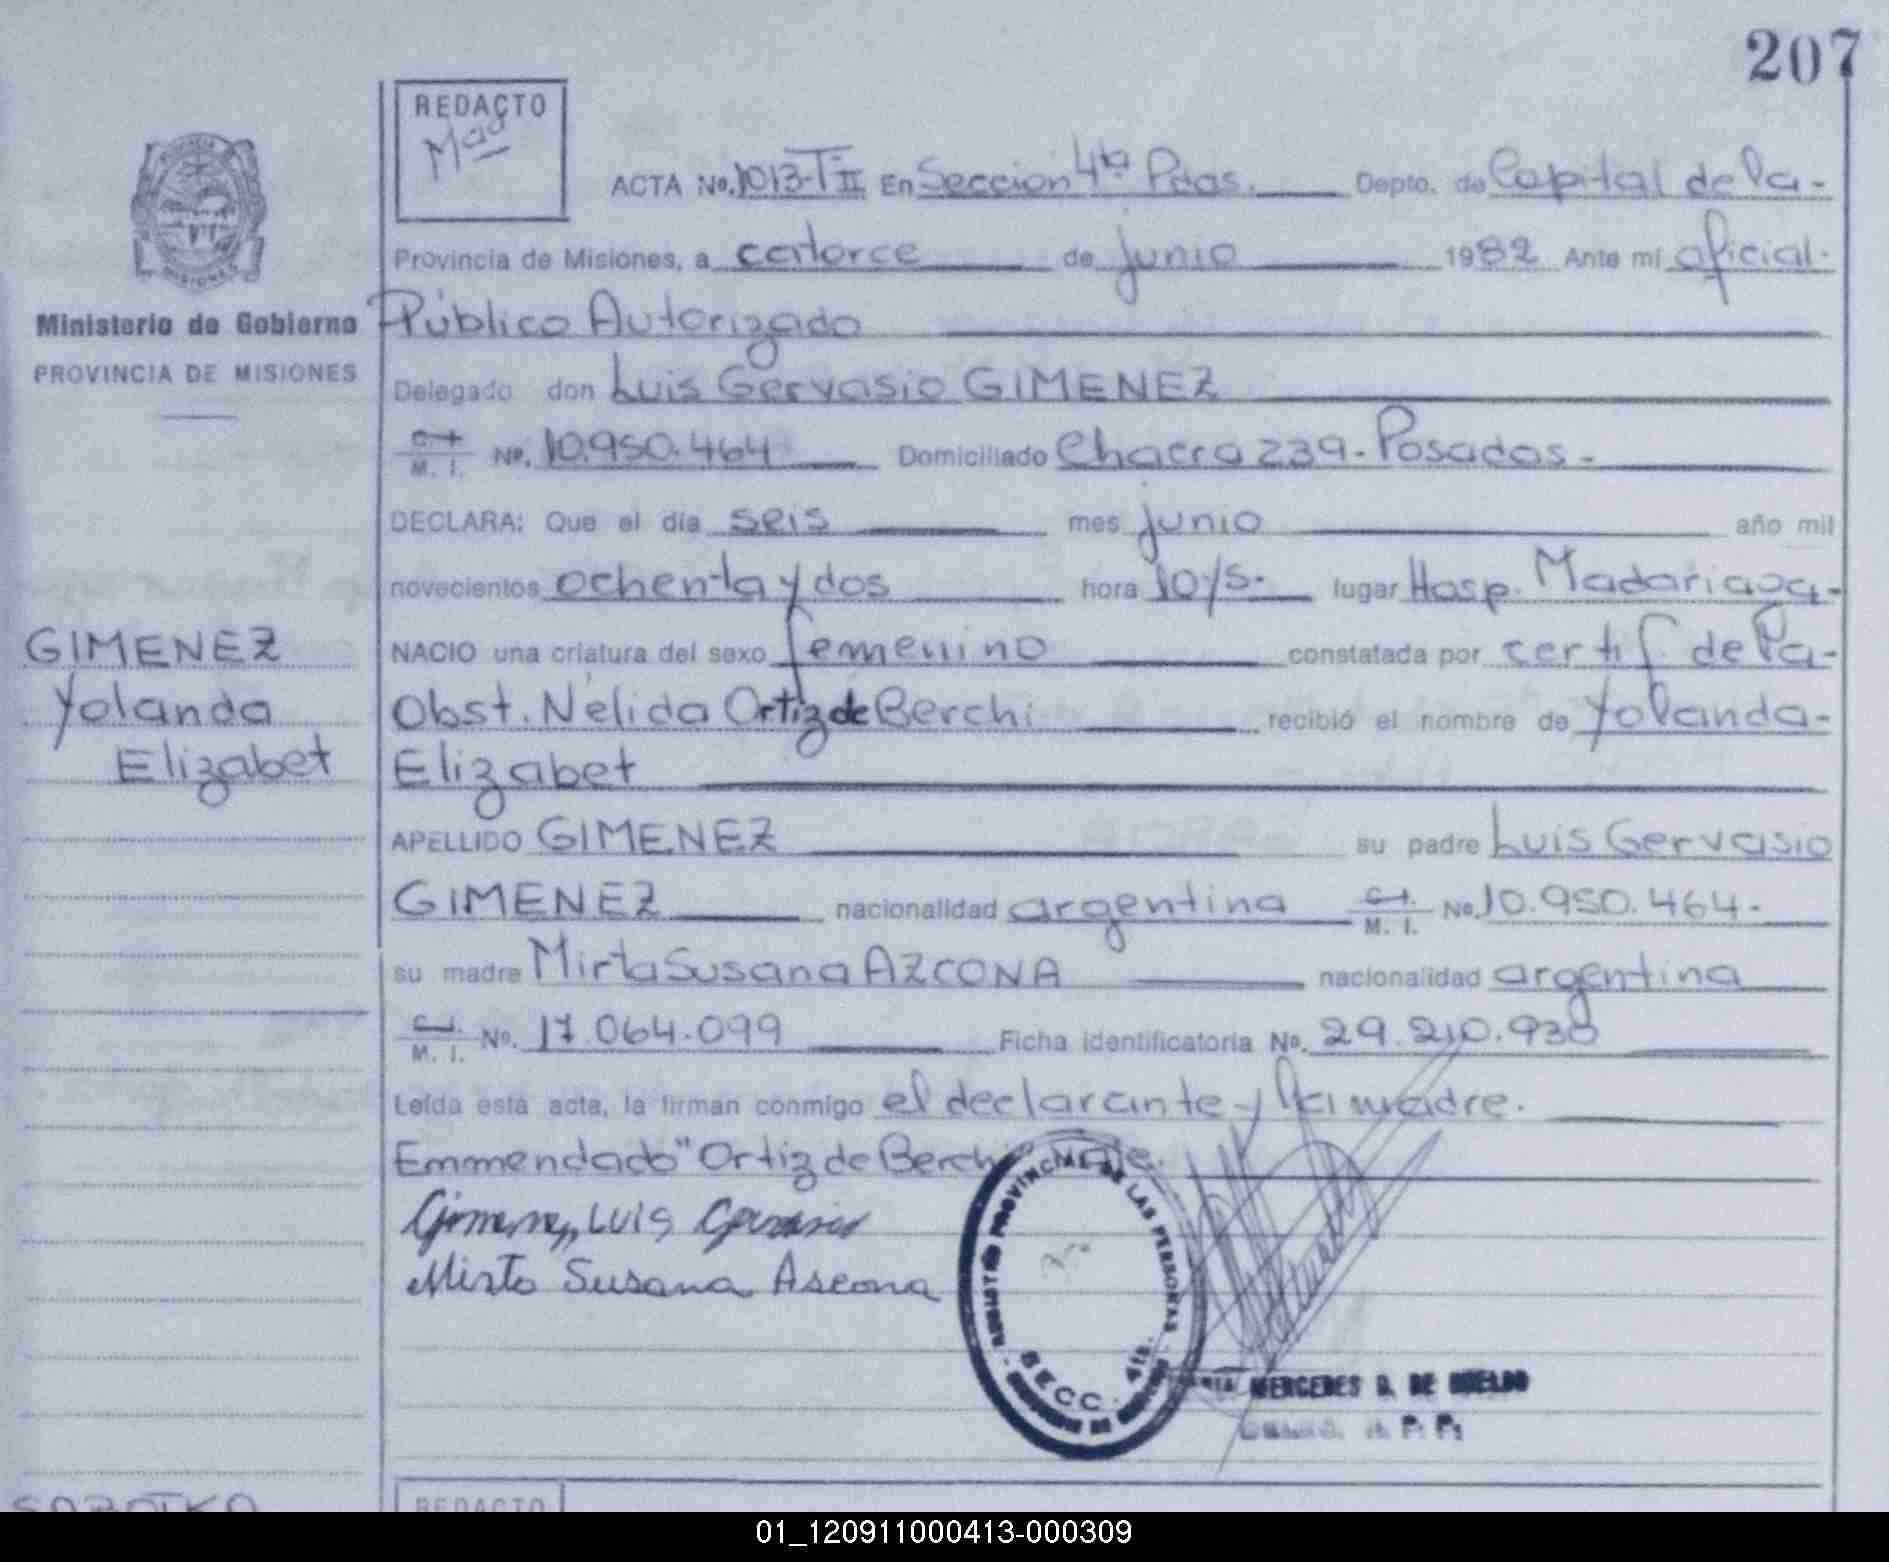 207
REDACTO
Mªª
ACTA No. 1013-T II En Sección 4ta Pdas. Depto. de Capital de la-
Provincia de Misiones, a catorce de junio 1982 Ante mi oficial.
Ministerio de Gobierno
Público Autorizado
PROVINCIA DE MISIONES
Delegado don Luis Gervasio GIMENEZ
C.I. M. I. No. 10.950.464 Domiciliado Chacra 239-Posadas-
DECLARA: Que el día seis mes junio año mil
novecientos ochenta y dos hora 10/5. lugar Hosp. Madariaga-
GIMENEZ
NACIO una criatura del sexo femenino constatada por certif de la-
Yolanda
Obst. Nélida Ortiz de Berchi recibió el nombre de Yolanda-
Elizabet
Elizabet
APELLIDO GIMENEZ su padre Luis Gervasio
GIMENEZ nacionalidad argentina C.I. M. I. No. 10.950.464-
su madre Mirta Susana AZCONA nacionalidad argentina
C.I. M. I. No. 17.064.099 Ficha identificatoria No. 29.210.930
Leída esta acta, la firman conmigo el declarante y la madre.
Emmendado "Ortiz de Berchi" Vale.
Gimenez, LUIS Gervasio
Mirta Susana Ascona
PROVINCIAL DE LAS PERSONAS
SECC. 4ta.
MERCEDES D. DE
01_120911000413-000309